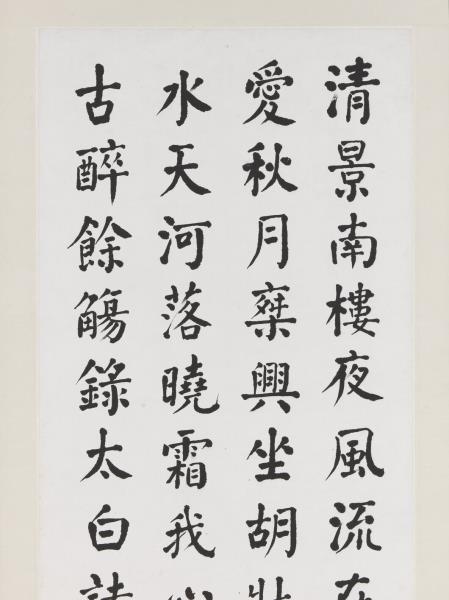 清景南樓夜風流在
愛秋月椉興坐胡牀
水天河落曉霜我心
古醉餘觴錄太白詩